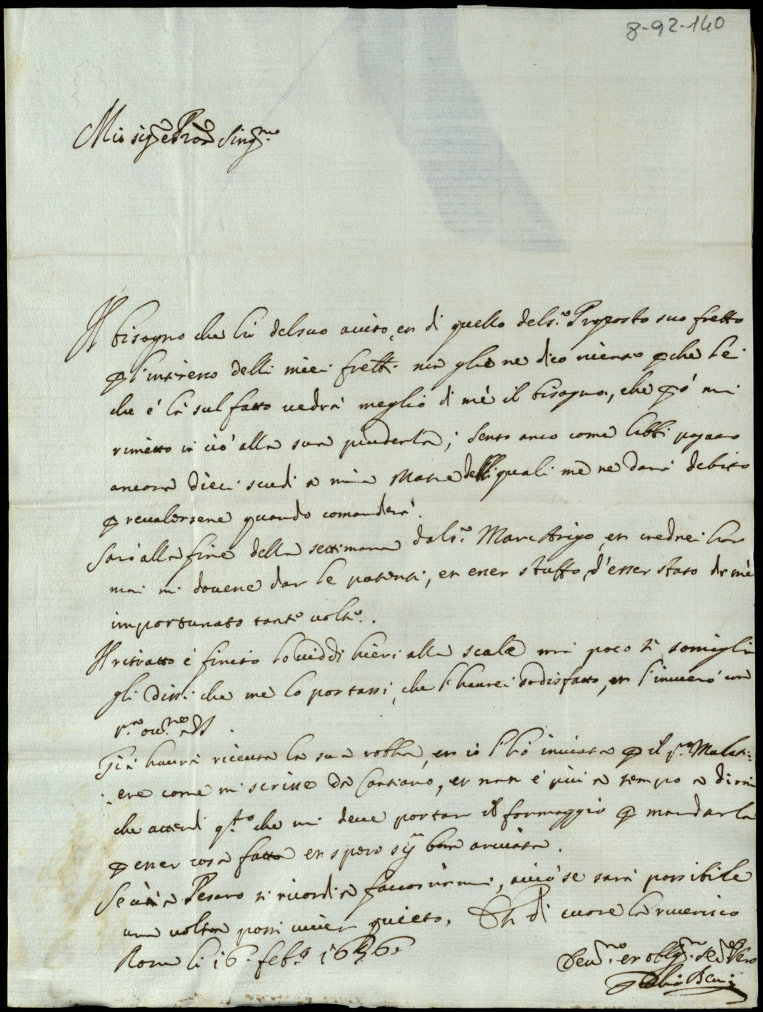 8-92-140
Mio sig.re e Pron Sing.mo
Il bisogno che hò del suo aiuto, et di quello del s.r Proposto suo fretto
p l'interesse delli miei fretti non gliene dico niente pche lei
che é là sul fatto vedrà meglio di mé il bisogno, che pò mi
rimetto in ciò alla sua prudenza; sento anco come habbi pagato
ancora dieci scudi a mia Madre delli quali me ne darà debito
p revalersene quando comanderà.
Sarò alla fine della settimana dal s.r Marc Arigo, et
mi dovere dar le patenti, et esser stuffo d'esser stato da mé
importunato tante volte.
Il ritratto é finito lo viddi hieri alle scale mà poco si somiglia
gli dissi che me lo portassi, che l'haurei sodisfatto, et l'inuierò con
Già haurà riceuta la sua robba, et io l'hò inuiata p il s.r
come mi scrisse da Cantiano, et non é più a tempo a dirmi
che attendi q.to che mi deue portar il formaggio p mandarla
p esser cosa fatta et spero sij ben arriuata.
Se và a Pesaro si ricordi a fauorirmi, acciò se sarà possibile
una volta possi uiuer quieto. Et di cuore la riuerisco
Roma li 16. feb.o
Deu.mo et oblig.mo se.re Vero